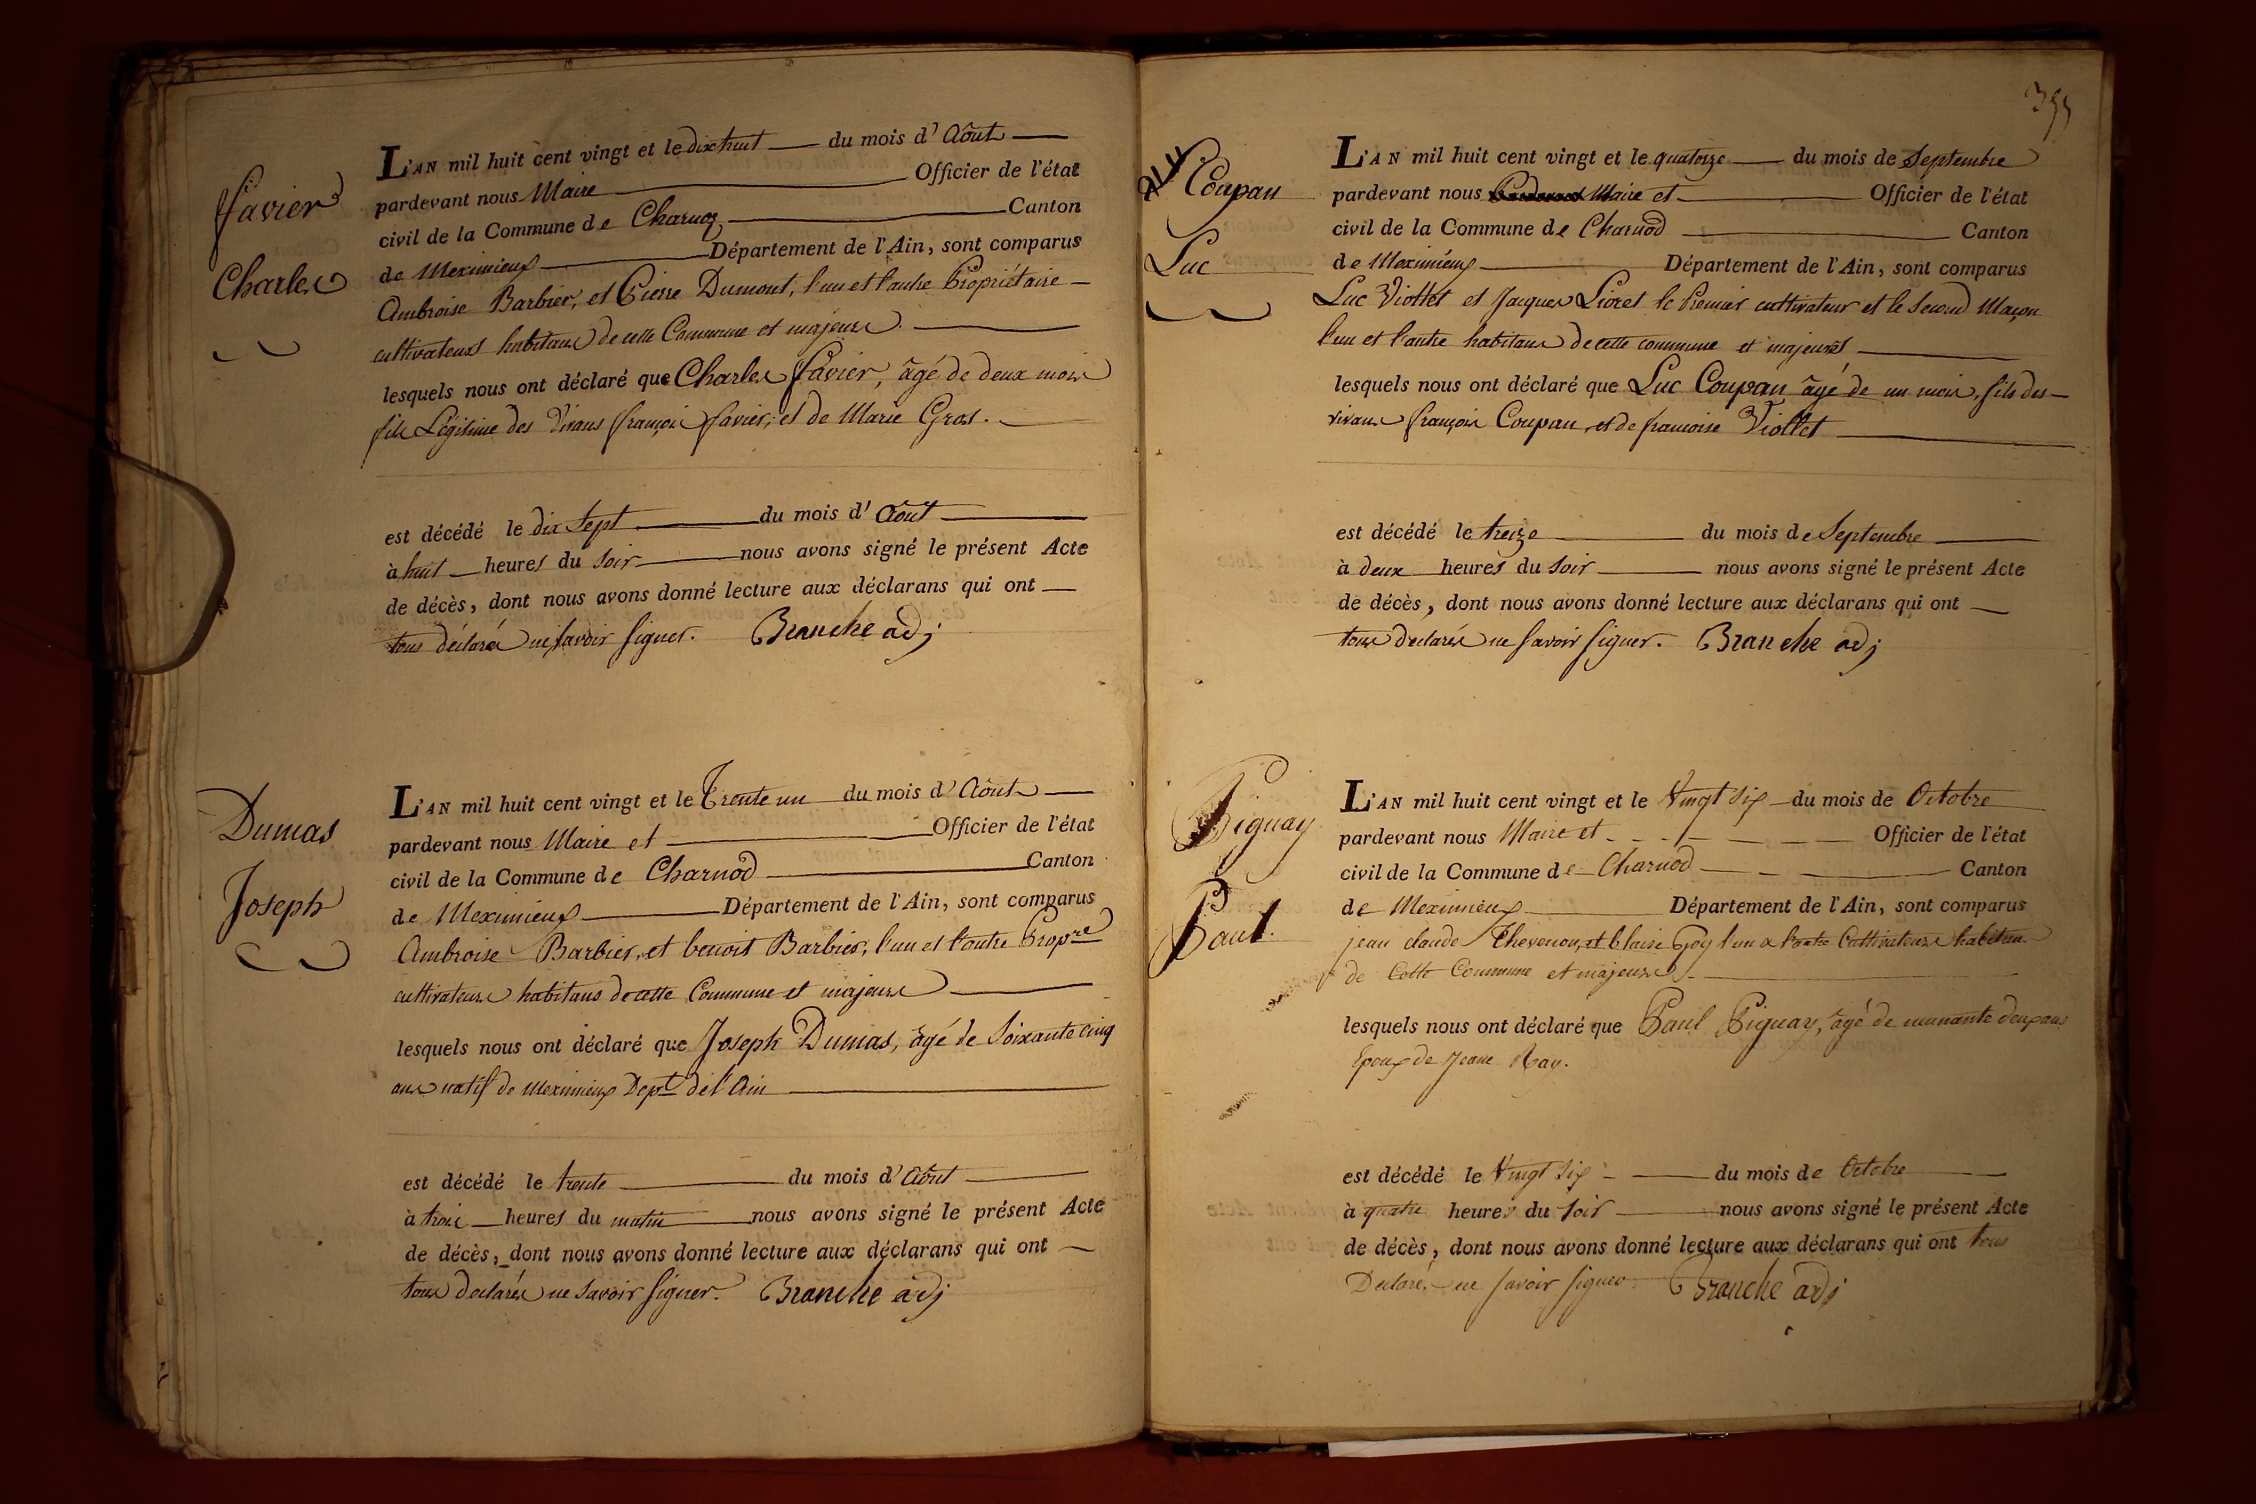 Favier
Charles
L'AN mil huit cent vingt et le dix huit du mois d'Août
pardevant nous Maire Officier de l'état
civil de la Commune de Charnoz Canton
de Meximieux Département de l'Ain, sont comparus
Ambroise Barbier, et Pierre Dumont, l'un et l'autre Propriétaire
cultivateurs habitans de cette Commune et majeurs.
lesquels nous ont déclaré que Charles Favier, âgé de deux mois
fils Légitime des Vivans françois favier, et de Marie Gros.
est décédé le dix Sept du mois d'Août
à huit heures du Soir nous avons signé le présent Acte
de décès, dont nous avons donné lecture aux déclarans qui ont
tous déclarés ne savoir signer. Branche adj
Dumas
Joseph
L'AN mil huit cent vingt et le Trente un du mois d'Août
pardevant nous Maire et Officier de l'état
civil de la Commune de Charnod Canton
de Meximieux Département de l'Ain, sont comparus
Ambroise Barbier, et benoit Barbier, l'un et l'autre Propre
cultivateurs habitans de cette Commune et majeurs
lesquels nous ont déclaré que Joseph Dumas, âgé de Soixante cinq
ans natif de Meximieux Dept de l'Ain
est décédé le trente du mois d'Août
à trois heures du matin nous avons signé le présent Acte
de décès, dont nous avons donné lecture aux déclarans qui ont
tous déclarés ne savoir signer. Branche adj
Coupan
Luc
L'AN mil huit cent vingt et le quatorze du mois de Septembre
pardevant nous Maire et Officier de l'état
civil de la Commune de Charnod Canton
de Meximieux Département de l'Ain, sont comparus
Luc Viollet et Jacques Lioret le Premier cultivateur et le Second Maçon
l'un et l'autre habitans de cette commune et majeurs
lesquels nous ont déclaré que Luc Coupan âgé de un mois, fils des
vivans françois Coupan, et de francoise Viollet
est décédé le treize du mois de Septembre
à deux heures du Soir nous avons signé le présent Acte
de décès, dont nous avons donné lecture aux déclarans qui ont
tous declarés ne savoir signer. Branche adj
Piguay
Paul.
L'AN mil huit cent vingt et le Vingt six du mois de Octobre
pardevant nous Maire et Officier de l'état
civil de la Commune de Charnod Canton
de Meximieux Département de l'Ain, sont comparus
jean claude Thevenon, et blaise Goy l'un & l'autre Cultivateurs habitans
de Cette Commune et majeurs
lesquels nous ont déclaré que Paul Piguay, âgé de deux ans
Epoux de Jeane Ray.
est décédé le Vingt six du mois de Octobre
à quatre heures du soir nous avons signé le présent Acte
de décès, dont nous avons donné lecture aux déclarans qui ont tous
Déclare, ne savoir signer. Branche adj